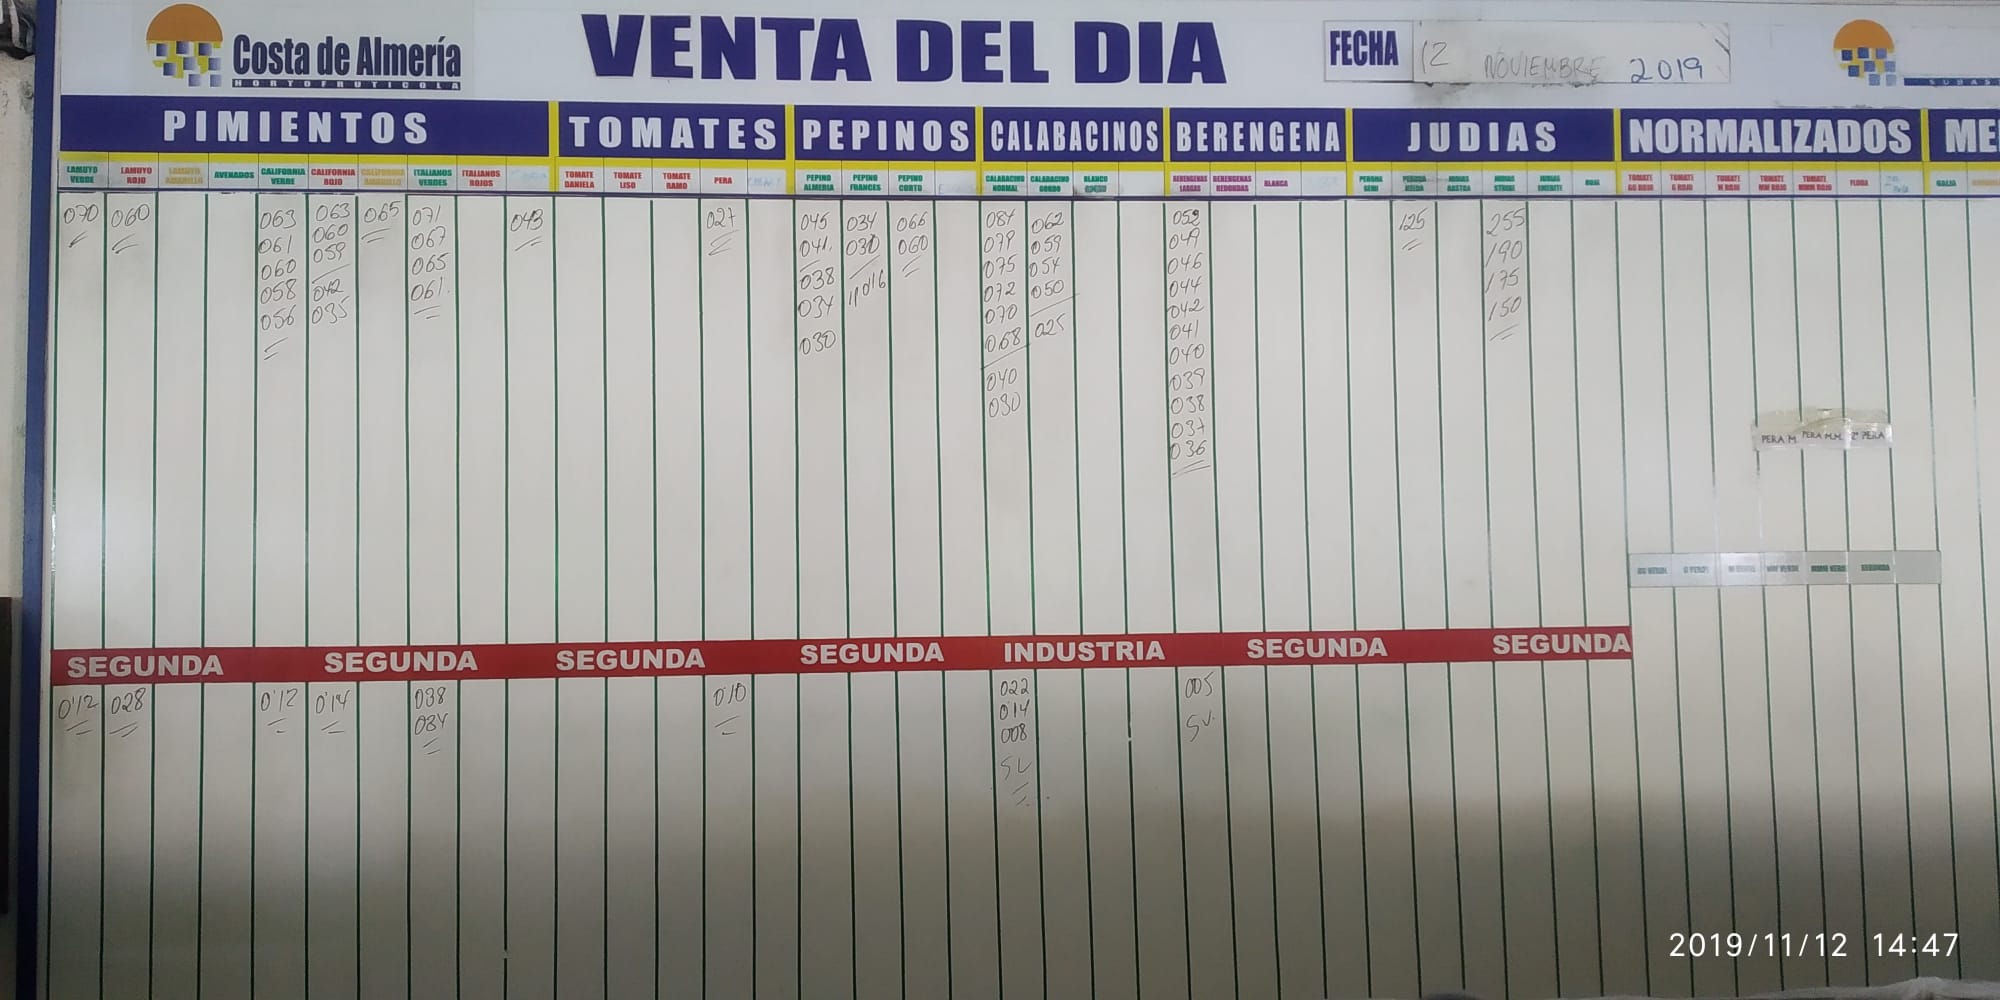 Costa de Almería
HORTOFRUTICOLA
VENTA DEL DIA
FECHA 12 NOVIEMBRE 2019
SUBAS
PIMIENTOS TOMATES PEPINOS CALABACINOS BERENGENA JUDIAS NORMALIZADOS ME
LAMUYO VERDE
LAMUYO ROJO
LAMUYO AMARILLO
AVENADOS
CALIFORNIA VERDE
CALIFORNIA ROJO
CALIFORNIA AMARILLO
ITALIANOS VERDES
ITALIANOS ROJOS
TOMATE DANIELA
TOMATE LISO
TOMATE RAMO
PERA
PEPINO ALMERIA
PEPINO FRANCES
PEPINO CORTO
CALABACINO NORMAL
CALABACINO GORDO
BLANCO
BERENGENAS LARGAS
BERENGENAS REDONDAS
BLANCA
PERONA SEMI
PERONA
JUDIAS RASTRA
JUDIAS STRIKE
JUDIAS EMERITE
TOMATE GG ROJO
TOMATE G ROJO
TOMATE M ROJO
TOMATE MM ROJO
TOMATE MMM ROJO
FLOJO
GALIA
070
060
063
061
060
058
056
063
060
059
042
035
065
071
067
065
061
043
027
045
041
038
034
030
034
030
016
066
060
087
079
075
072
070
068
040
030
062
059
054
050
025
052
049
046
044
042
041
040
039
038
037
036
125
255
190
175
150
PERA M
PERA M.M.
2ª PERA
GG VERDE
G VERDE
M VERDE
MM VERDE
MMM VERDE
SEGUNDA
SEGUNDA SEGUNDA SEGUNDA SEGUNDA INDUSTRIA SEGUNDA SEGUNDA
0'12
028
0'12
0'14
038
034
0'10
022
0'14
008
005
2019/11/12 14:47